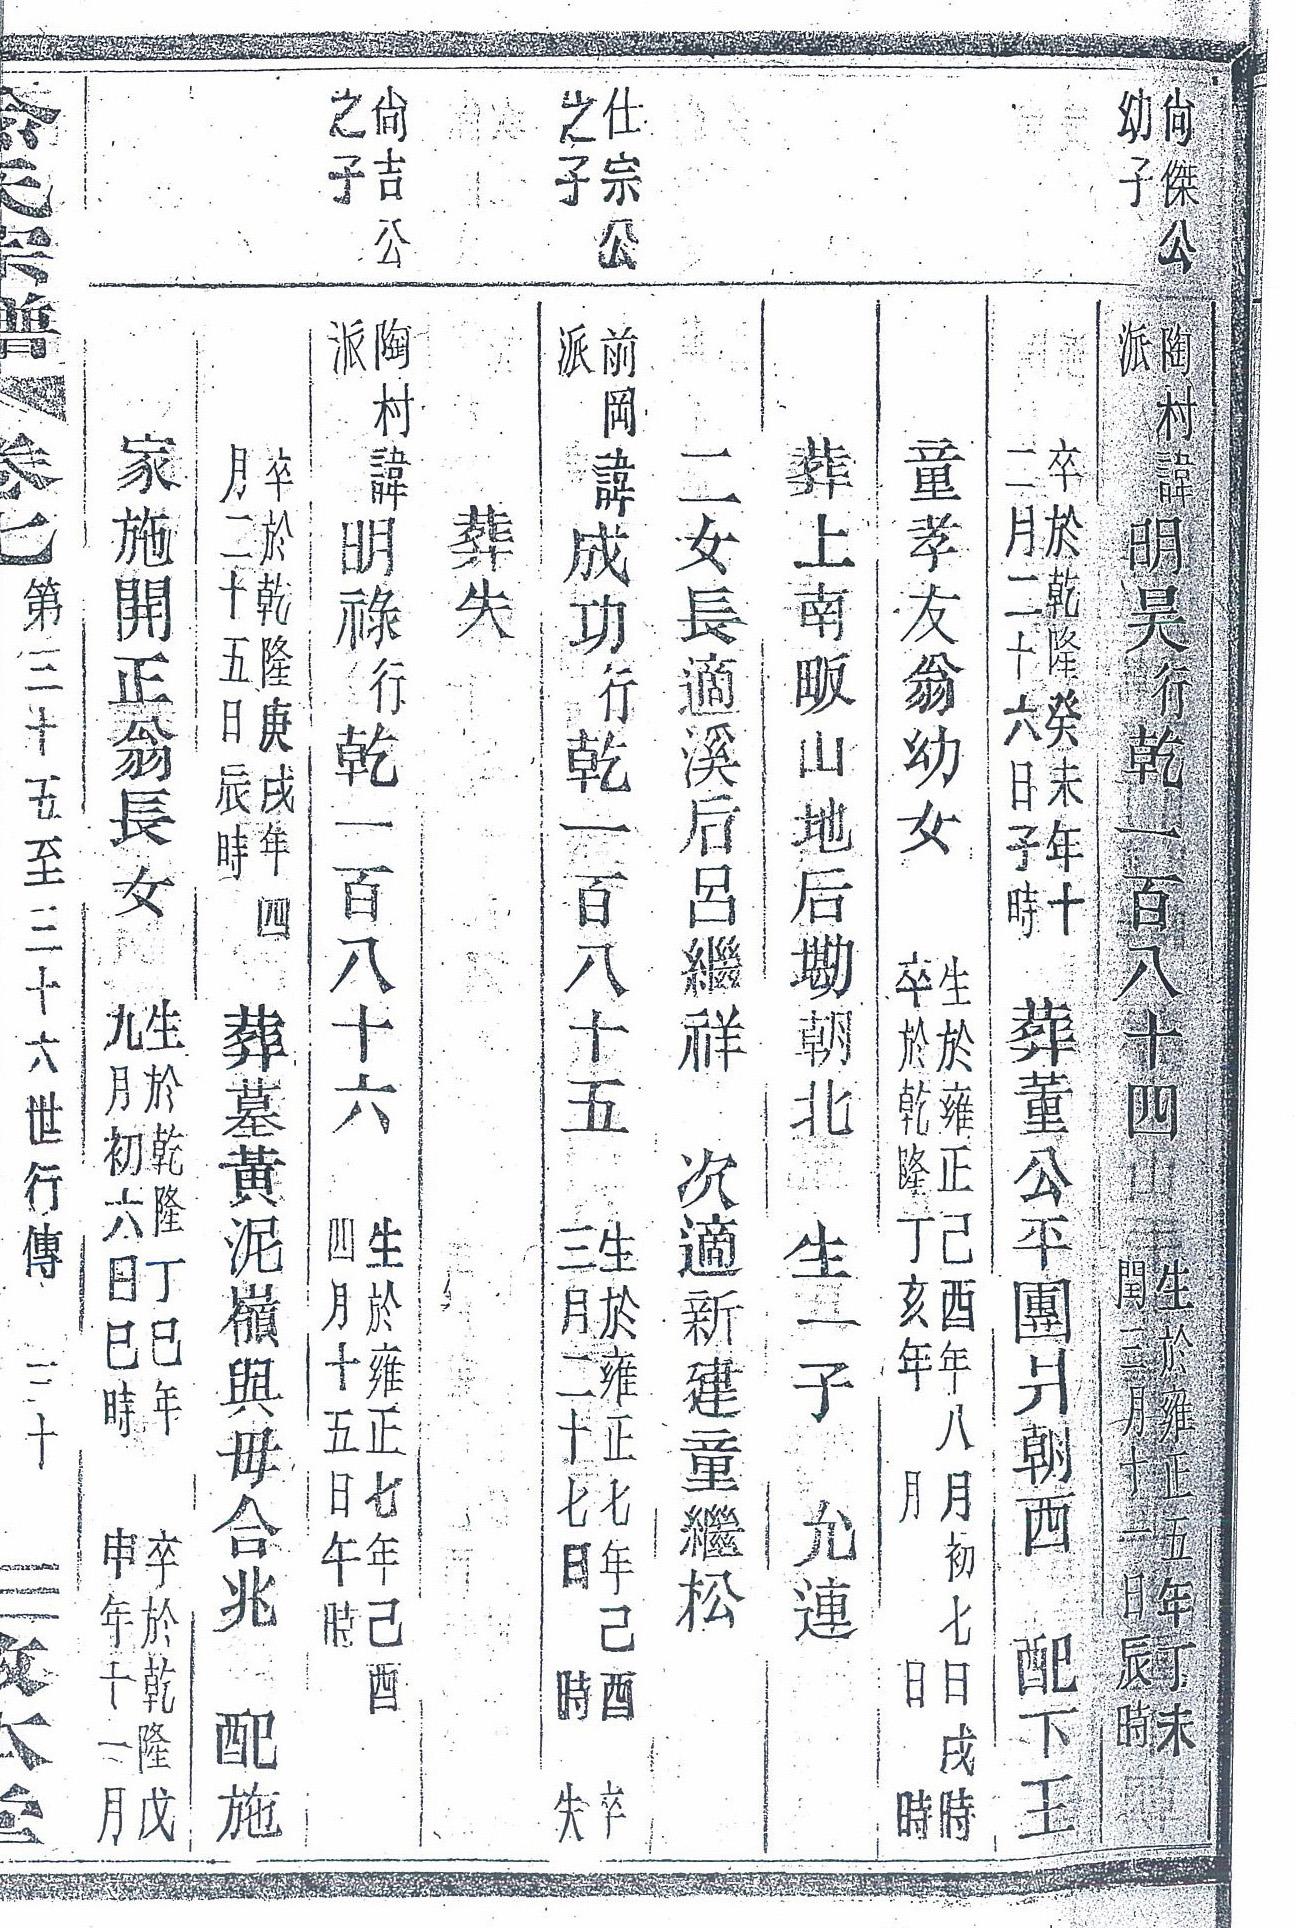 尙傑公
幼子
陶村諱
派
明昊行乾一百八十四
生於雍正五年丁未
閏三月十一日辰時
卒於乾隆癸未年十
二月二十六日子時
葬董公平團爿朝西　配下王
童孝友翁幼女
生於雍正己酉年八月初七日戌時
卒於乾隆丁亥年　月　日　時
葬上南畈山地后塝朝北　生一子　允連
二女長適溪后呂繼祥　次適新建童繼松
仕宗公
之子
前岡諱
派
成功行乾一百八十五
生於雍正七年己酉
三月二十七日　時
卒
失
葬失
尙吉公
之子
陶村諱
派
明祿行乾一百八十六
生於雍正七年己酉
四月十五日午時
卒於乾隆庚戌年四
月二十五日辰時
葬墓黃泥嶺與毋合兆　配施
家施開正翁長女
生於乾隆丁巳年
九月初六日巳時
卒於乾隆戊
申年十一月
氏宗譜　卷七　第三十五至三十六世行傳　三十　三敬本堂